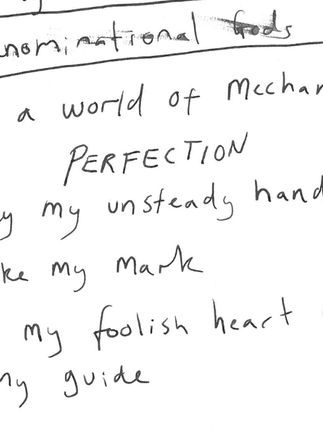 nominational Gods
a world of Mechan
PERFECTION
y my unsteady hand
ke my mark
my foolish heart
my guide